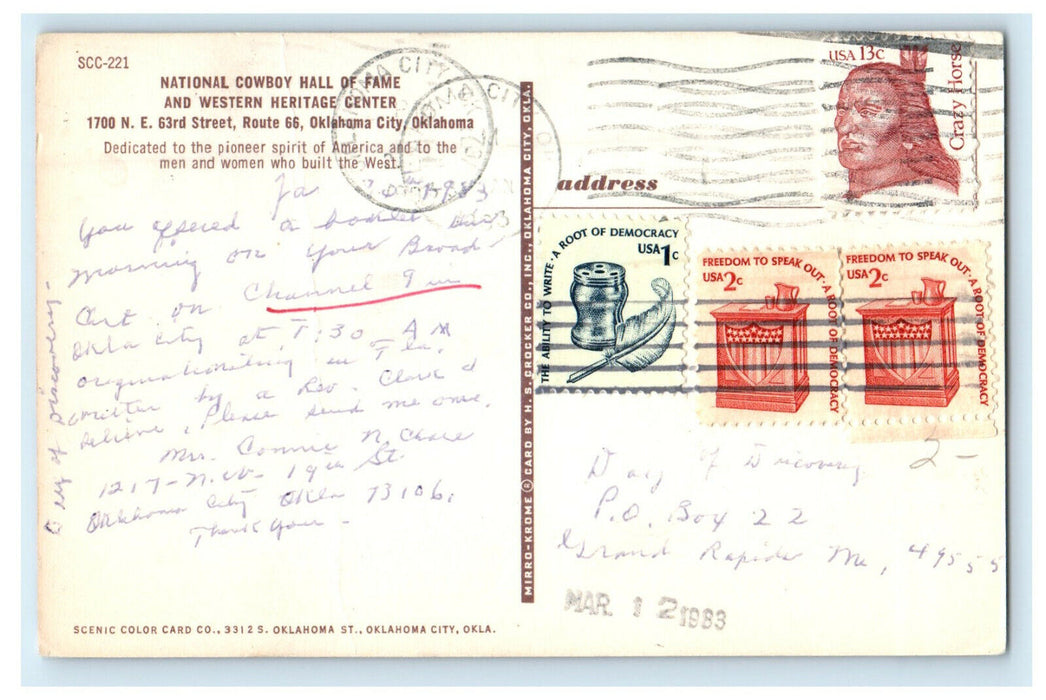 SCC-221
NATIONAL COWBOY HALL OF FAME
AND WESTERN HERITAGE CENTER
1700 N. E. 63rd Street, Route 66, Oklahoma City, Oklahoma
Dedicated to the pioneer spirit of America and to the
men and women who built the West.
1983
You offered a booklet this
morning on your Broad
Cast on Channel 9 in
Okla City at 7:30 AM
originationing in Fla.
written by a Rev. Clark I
believe, Please send me one.
Mrs. Connie N. Chase
1217-N.W. 19th St.
Oklahoma City Okla 73106.
Thank You -
Day of Discovery -
SCENIC COLOR CARD CO., 3312 S. OKLAHOMA ST., OKLAHOMA CITY, OKLA.
MIRRO-KROME ® CARD BY H. S. CROCKER CO., INC., OKLAHOMA CITY, OKLA.
OMA CITY
address
USA 13c
Crazy Horse
THE ABILITY TO WRITE · A ROOT OF DEMOCRACY
USA 1c
FREEDOM TO SPEAK OUT · A ROOT OF DEMOCRACY
USA 2c
FREEDOM TO SPEAK OUT · A ROOT OF DEMOCRACY
USA 2c
2-
Day of Discovery
P.O. Box 22
Grand Rapids Mc, 49555
MAR 12 1983